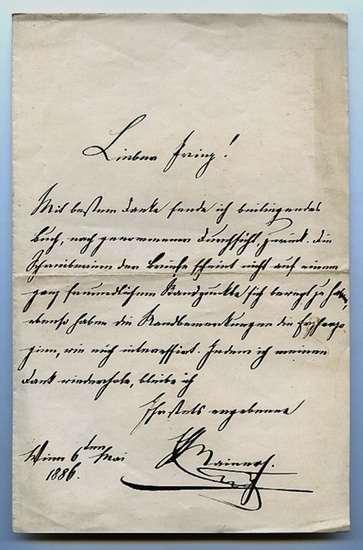 Lieber Prinz!
Mit bestem Danke sende ich beiliegendes
Buch, nach genommener Durchsicht, zurück. Die
Schreiberin der Briefe scheint nicht auf einem
ganz freundlichen Standpunkte sich bewegt zu haben,
ebenso haben die Randbemerkungen die
wie mich interessirt. Indem ich meinen
Dank wiederhole, bleibe ich
Ihr stets ergebener
Wien 6ten Mai
1886.
Rainer